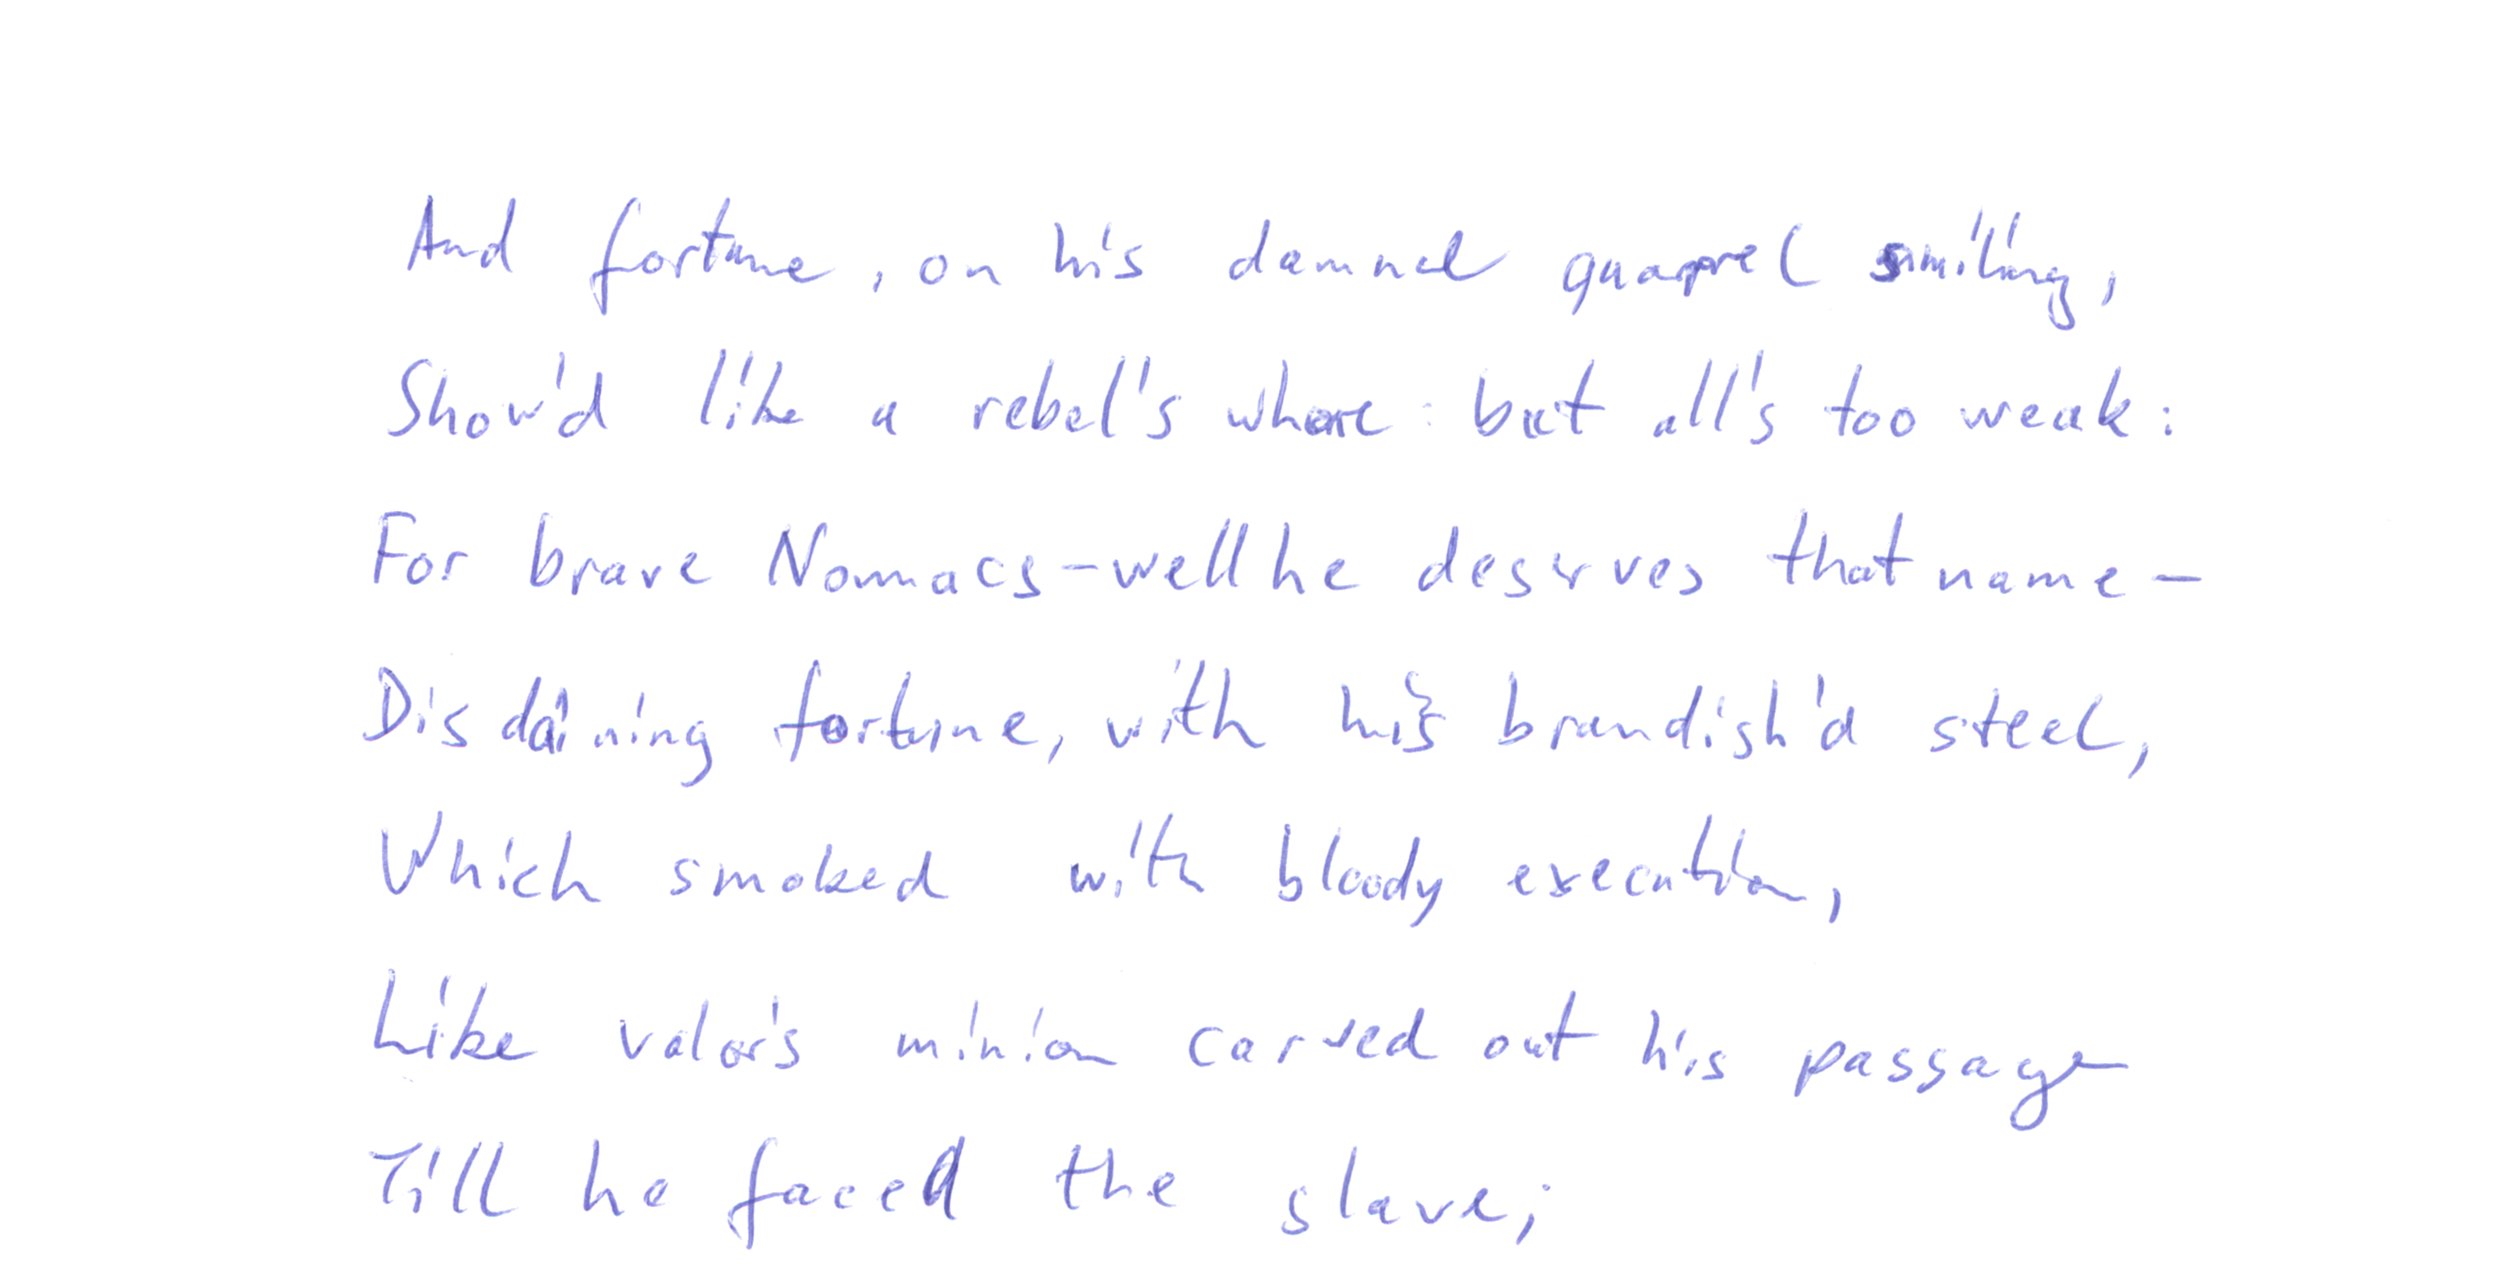 And fortune, on his damned quarrel smiling,
Show'd like a rebel's whore: but all's too weak:
For brave Nomacs-well he deserves that name-
Disdaining fortune, with his brandish'd steel,
Which smoked with bloody execution,
Like valor's minion carved out his passage
Till he faced the slave;